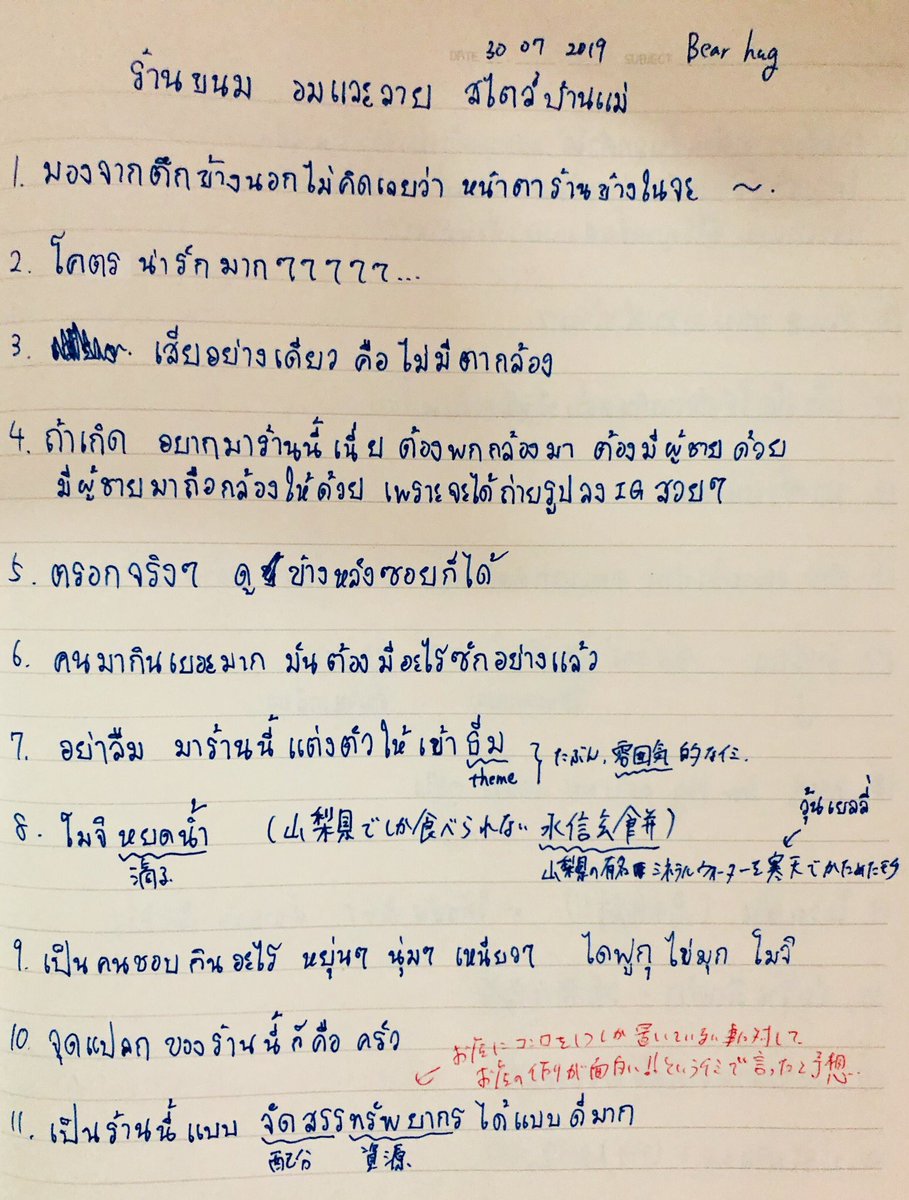 30 07 2019 Bear hug
DATE SUBJECT
ร้านขนม อมและลาย สไตล์บ้านแม่
1. มองจากตึกข้างนอกไม่คิดเลยว่า หน้าตาร้านข้างในจะ ~.
2. โคตร น่ารักมากๆๆๆๆๆ...
3. เสียอย่างเดียว คือ ไม่มีตากล้อง
4. ถ้าเกิด อยากมาร้านนี้ เนี่ย ต้องพกกล้องมา ต้องมีผู้ชายด้วย
มีผู้ชายมาถือกล้องให้ด้วย เพราะจะได้ถ่ายรูปลง IG สวยๆ
5. ตรอกจริงๆ ดู ข้างหลังซอยก็ได้
6. คนมากินเยอะมาก มันต้องมีอะไรซักอย่างแล้ว
7. อย่าลืม มาร้านนี้ แต่งตัวให้เข้าธีม } たぶん、雰囲気的なイミ.
theme
วุ้นเยลลี่
8. โมจิ หยดน้ำ (山梨県でしか食べられない 水信玄餅)
滴る 山梨県の有名 ミネラルウォーターを寒天でかためたもち
9. เป็นคนชอบกินอะไร หยุ่นๆ นุ่มๆ เหนียวๆ ไดฟูกุ ไข่มุก โมจิ
10. จุดแปลก ของร้านนี้ ก็คือ ครัว
お店にコンロを1つしか置いていない事に対して
お店の作りが面白い!!というイミで言ったと予想..
11. เป็นร้านนี้ แบบ จัดสรรทรัพยากร ได้แบบดีมาก
配分 資源.